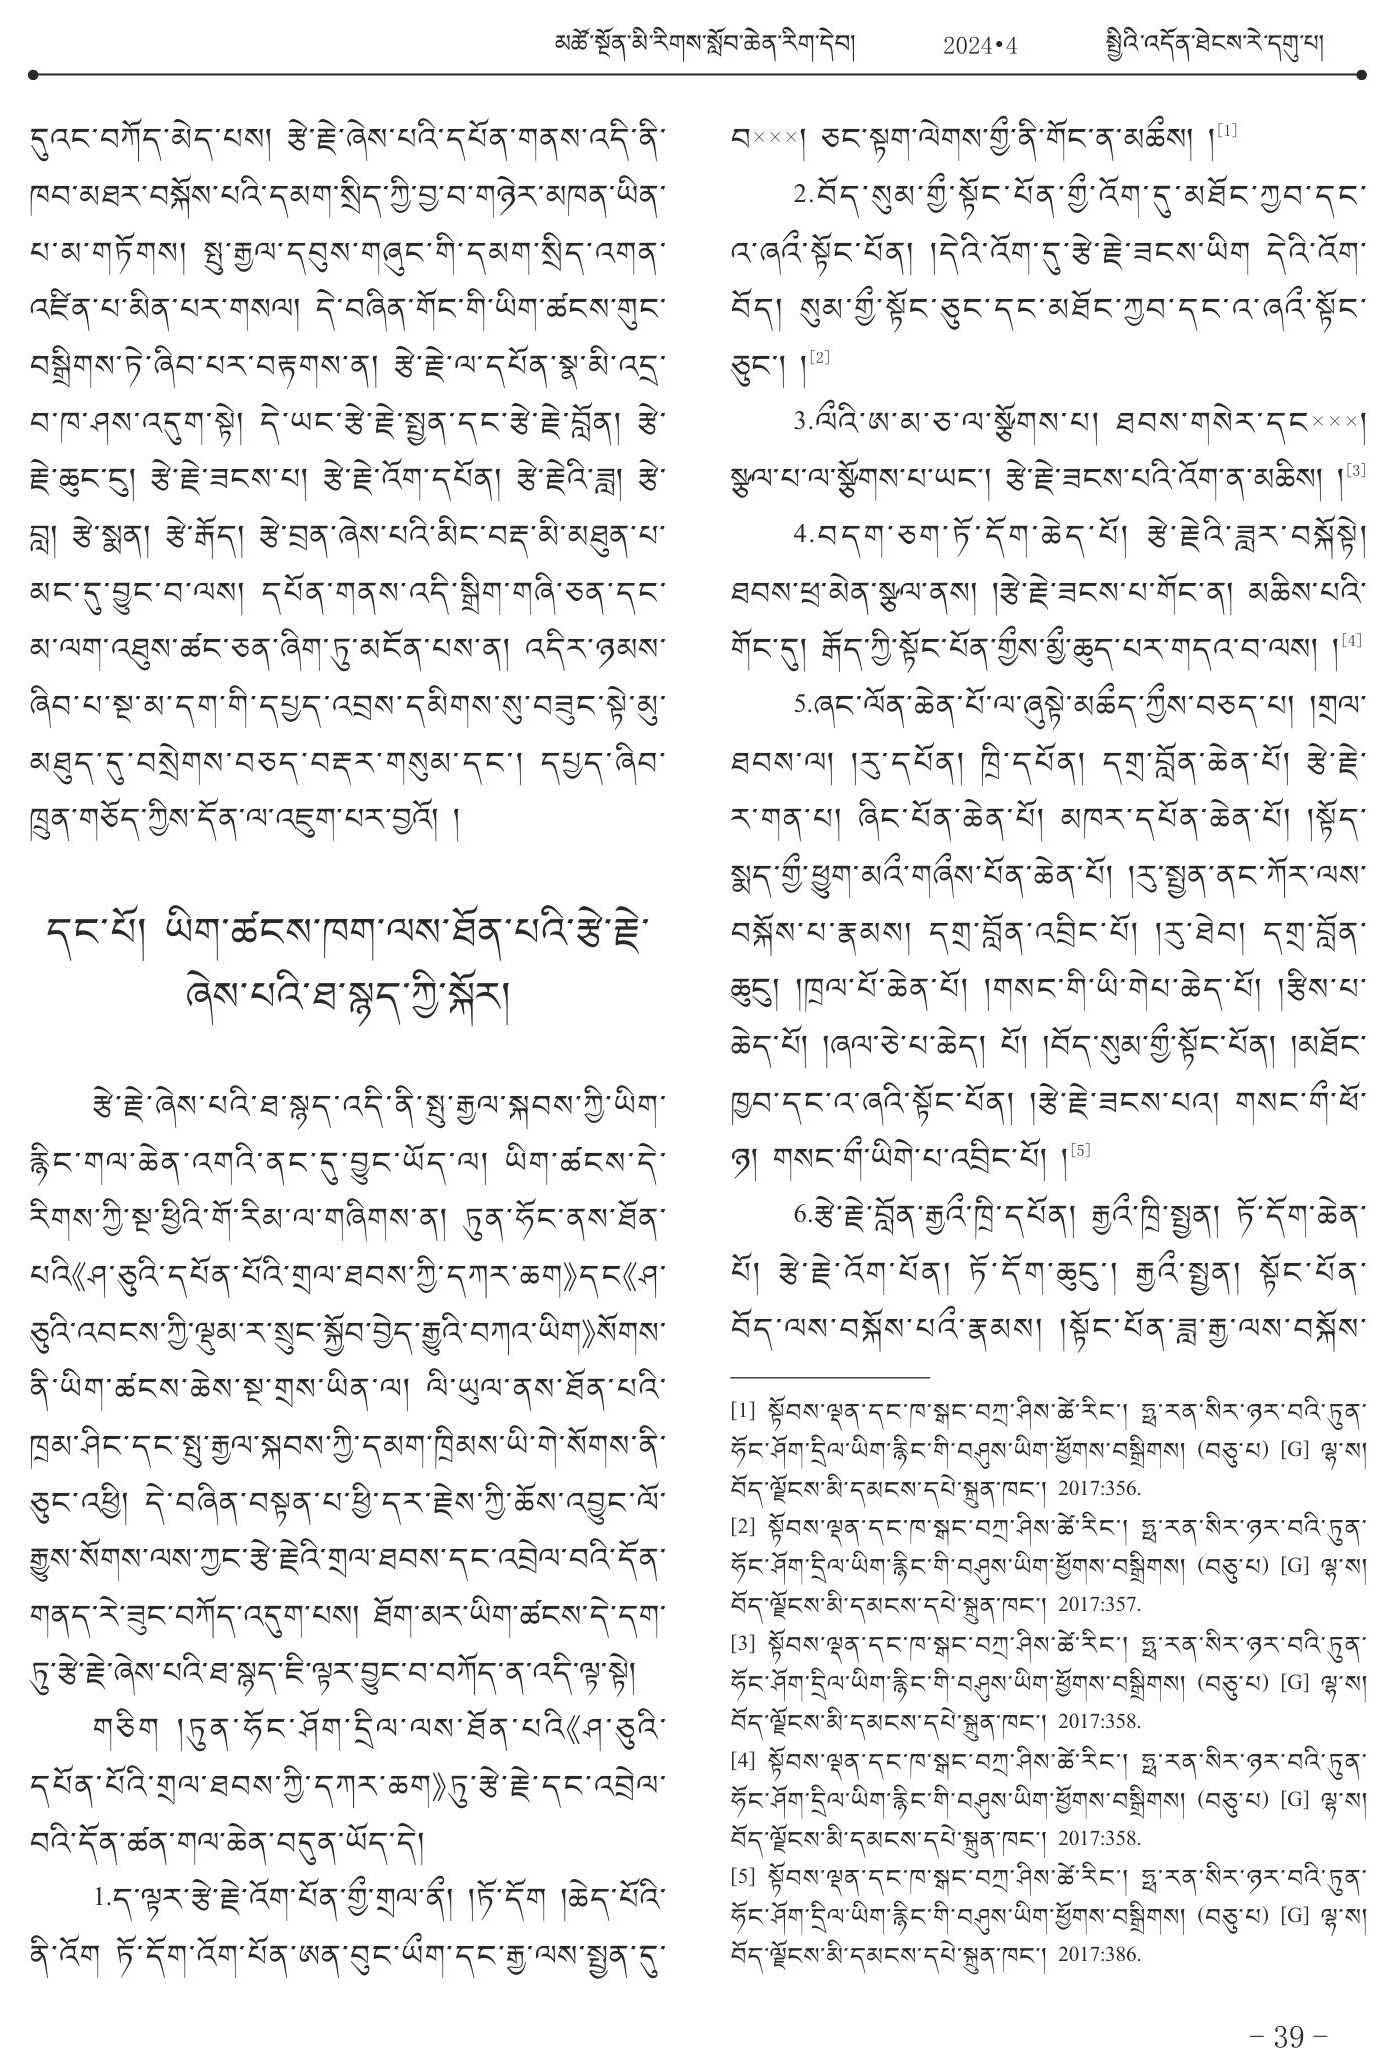 མཚོ་སྔོན་མི་རིགས་སློབ་ཆེན་རིག་དེབ། 2024•4 སྤྱིའི་འདོན་ཐེངས་རེ་དགུ་པ།
དུའང་བཀོད་མེད་པས། རྩེ་རྗེ་ཞེས་པའི་དཔོན་གནས་འདི་ནི་
ཁབ་མཐར་བསྐོས་པའི་དམག་སྲིད་ཀྱི་བྱ་བ་གཉེར་མཁན་ཡིན་
པ་མ་གཏོགས། སྤུ་རྒྱལ་དབུས་གཞུང་གི་དམག་སྲིད་འགན་
འཛིན་པ་མིན་པར་གསལ། དེ་བཞིན་གོང་གི་ཡིག་ཚངས་གུང་
བསྒྲིགས་ཏེ་ཞིབ་པར་བརྟགས་ན། རྩེ་རྗེ་ལ་དཔོན་སྣ་མི་འདྲ་
བ་ཁ་ཤས་འདུག་སྟེ། དེ་ཡང་རྩེ་རྗེ་སྤྱན་དང་རྩེ་རྗེ་བློན། རྩེ་
རྗེ་ཆུང་ངུ། རྩེ་རྗེ་ཟངས་པ། རྩེ་རྗེ་འོག་དཔོན། རྩེ་རྗེའི་ཟླ། རྩེ་
བླ། རྩེ་སྨན། རྩེ་རྒོད། རྩེ་བྲན་ཞེས་པའི་མིང་བརྡ་མི་མཐུན་པ་
མང་དུ་བྱུང་བ་ལས། དཔོན་གནས་འདི་སྒྲིག་གཞི་ཅན་དང་
མ་ལག་འཐུས་ཚང་ཅན་ཞིག་ཏུ་མངོན་པས་ན། འདིར་ཉམས་
ཞིབ་པ་སྔ་མ་དག་གི་དཔྱད་འབྲས་དམིགས་སུ་བཟུང་སྟེ་མུ་
མཐུད་དུ་བསྲེགས་བཅད་བརྡར་གསུམ་དང་། དཔྱད་ཞིབ་
ཁྲུན་གཅོད་ཀྱིས་དོན་ལ་འཇུག་པར་བྱའོ། །
དང་པོ། ཡིག་ཚངས་ཁག་ལས་ཐོན་པའི་རྩེ་རྗེ་
ཞེས་པའི་ཐ་སྙད་ཀྱི་སྐོར།
རྩེ་རྗེ་ཞེས་པའི་ཐ་སྙད་འདི་ནི་སྤུ་རྒྱལ་སྐབས་ཀྱི་ཡིག་
རྙིང་གལ་ཆེན་འགའི་ནང་དུ་བྱུང་ཡོད་ལ། ཡིག་ཚངས་དེ་
རིགས་ཀྱི་སྔ་ཕྱིའི་གོ་རིམ་ལ་གཞིགས་ན། ཏུན་ཧོང་ནས་ཐོན་
པའི《ཤ་ཅུའི་དཔོན་པོའི་གྲལ་ཐབས་ཀྱི་དཀར་ཆག》དང《ཤ་
ཅུའི་འབངས་ཀྱི་ལྡུམ་ར་སྲུང་སྐྱོབ་བྱེད་རྒྱུའི་བཀའ་ཡིག》སོགས་
ནི་ཡིག་ཚངས་ཆེས་སྔ་གྲས་ཡིན་ལ། ལི་ཡུལ་ནས་ཐོན་པའི་
ཁྲམ་ཤིང་དང་སྤུ་རྒྱལ་སྐབས་ཀྱི་དམག་ཁྲིམས་ཡི་གེ་སོགས་ནི་
ཅུང་འཕྱི། དེ་བཞིན་བསྟན་པ་ཕྱི་དར་རྗེས་ཀྱི་ཆོས་འབྱུང་ལོ་
རྒྱུས་སོགས་ལས་ཀྱང་རྩེ་རྗེའི་གྲལ་ཐབས་དང་འབྲེལ་བའི་དོན་
གནད་རེ་ཟུང་བཀོད་འདུག་པས། ཐོག་མར་ཡིག་ཚངས་དེ་དག་
ཏུ་རྩེ་རྗེ་ཞེས་པའི་ཐ་སྙད་ཇི་ལྟར་བྱུང་བ་བཀོད་ན་འདི་ལྟ་སྟེ།
གཅིག །ཏུན་ཧོང་ཤོག་དྲིལ་ལས་ཐོན་པའི《ཤ་ཅུའི་
དཔོན་པོའི་གྲལ་ཐབས་ཀྱི་དཀར་ཆག》ཏུ་རྩེ་རྗེ་དང་འབྲེལ་
བའི་དོན་ཚན་གལ་ཆེན་བདུན་ཡོད་དེ།
1.ད་ལྟར་རྩེ་རྗེ་འོག་པོན་གྱྀ་གྲལ་ནྀ། །ཏོ་དོག །ཆེད་པོའི་
ནི་འོག ཏོ་དོག་འོག་པོན་ཨན་བུང་ཡྀག་དང་རྒྱ་ལས་སྤྱན་དུ་
བ×××། ཅང་སྟག་ལེགས་གྱྀ་ནི་གོང་ན་མཆྀས། །[1]
2.བོད་སུམ་གྱྀ་སྟོང་པོན་གྱྀ་འོག་དུ་མཐོང་ཀྱབ་དང་
འ་ཞའྀ་སྟོང་པོན། །དེའི་འོག་དུ་རྩེ་རྗེ་ཟངས་ཡིག དེའི་འོག་
བོད། སུམ་གྱྀ་སྟོང་ཅུང་དང་མཐོང་ཀྱབ་དང་འ་ཞའྀ་སྟོང་
ཅུང་། །[2]
3.ལྀའི་ཨ་མ་ཅ་ལ་སྩོགས་པ། ཐབས་གསེར་དང×××།
སྩལ་པ་ལ་སྩོགས་པ་ཡང་། རྩེ་རྗེ་ཟངས་པའི་འོག་ན་མཆིས། །[3]
4.བདག་ཅག་ཏོ་དོག་ཆེད་པོ། རྩེ་རྗེའི་ཟླར་བསྐོསྟེ།
ཐབས་ཕྲ་མེན་སྩལ་ནས། །རྩེ་རྗེ་ཟངས་པ་གོང་ན། མཆིས་པའི་
གོང་དུ། རྒོད་ཀྱི་སྟོང་པོན་གྱྀས་མྱྀ་ཆུད་པར་གདའ་བ་ལས། །[4]
5.ཞང་ལོན་ཆེན་པོ་ལ་ཞུསྟེ་མཆྀད་ཀྱྀས་བཅད་པ། །གྲལ་
ཐབས་ལ། །རུ་དཔོན། ཁྲི་དཔོན། དགྲ་བློན་ཆེན་པོ། རྩེ་རྗེ་
ར་གན་པ། ཞིང་པོན་ཆེན་པོ། མཁར་དཔོན་ཆེན་པོ། །སྟོད་
སྨད་གྱྀ་ཕྱུག་མའྀ་གཞྀས་པོན་ཆེན་པོ། །རུ་སྤྱན་ནང་ཀོར་ལས་
བསྐོས་པ་རྣམས། དགྲ་བློན་འབྲིང་པོ། །རུ་ཐེབ། དགྲ་བློན་
ཆུངུ། །ཁྲལ་པོ་ཆེན་པོ། །གསང་གི་ཡི་གེཔ་ཆེད་པོ། །རྩིས་པ་
ཆེད་པོ། །ཞལ་ཅེ་པ་ཆེད། པོ། །བོད་སུམ་གྱྀ་སྟོང་པོན། །མཐོང་
ཁྱབ་དང་འ་ཞའི་སྟོང་པོན། །རྩེ་རྗེ་ཟངས་པའ། གསང་གྀ་ཕོ་
ཉ། གསང་གྀ་ཡིགེ་པ་འབྲིང་པོ། །[5]
6.རྩེ་རྗེ་བློན་རྒྱའྀ་ཁྲི་དཔོན། རྒྱའྀ་ཁྲི་སྤྱན། ཏོ་དོག་ཆེན་
པོ། རྩེ་རྗེ་འོག་པོན། ཏོ་དོག་ཆུངུ་། རྒྱའྀ་སྤྱན། སྟོང་པོན་
བོད་ལས་བསྐོས་པའྀ་རྣམས། །སྟོང་པོན་ཟླ་རྒྱ་ལས་བསྐོས་
[1] སྟོབས་ལྡན་དང་ཁ་སྒང་བཀྲ་ཤིས་ཚེ་རིང་། ཧྥ་རན་སིར་ཉར་བའི་ཏུན་
ཧོང་ཤོག་དྲིལ་ཡིག་རྙིང་གི་བཤུས་ཡིག་ཕྱོགས་བསྒྲིགས། (བཅུ་པ) [G] ལྷ་ས།
བོད་ལྗོངས་མི་དམངས་དཔེ་སྐྲུན་ཁང་། 2017:356.
[2] སྟོབས་ལྡན་དང་ཁ་སྒང་བཀྲ་ཤིས་ཚེ་རིང་། ཧྥ་རན་སིར་ཉར་བའི་ཏུན་
ཧོང་ཤོག་དྲིལ་ཡིག་རྙིང་གི་བཤུས་ཡིག་ཕྱོགས་བསྒྲིགས། (བཅུ་པ) [G] ལྷ་ས།
བོད་ལྗོངས་མི་དམངས་དཔེ་སྐྲུན་ཁང་། 2017:357.
[3] སྟོབས་ལྡན་དང་ཁ་སྒང་བཀྲ་ཤིས་ཚེ་རིང་། ཧྥ་རན་སིར་ཉར་བའི་ཏུན་
ཧོང་ཤོག་དྲིལ་ཡིག་རྙིང་གི་བཤུས་ཡིག་ཕྱོགས་བསྒྲིགས། (བཅུ་པ) [G] ལྷ་ས།
བོད་ལྗོངས་མི་དམངས་དཔེ་སྐྲུན་ཁང་། 2017:358.
[4] སྟོབས་ལྡན་དང་ཁ་སྒང་བཀྲ་ཤིས་ཚེ་རིང་། ཧྥ་རན་སིར་ཉར་བའི་ཏུན་
ཧོང་ཤོག་དྲིལ་ཡིག་རྙིང་གི་བཤུས་ཡིག་ཕྱོགས་བསྒྲིགས། (བཅུ་པ) [G] ལྷ་ས།
བོད་ལྗོངས་མི་དམངས་དཔེ་སྐྲུན་ཁང་། 2017:358.
[5] སྟོབས་ལྡན་དང་ཁ་སྒང་བཀྲ་ཤིས་ཚེ་རིང་། ཧྥ་རན་སིར་ཉར་བའི་ཏུན་
ཧོང་ཤོག་དྲིལ་ཡིག་རྙིང་གི་བཤུས་ཡིག་ཕྱོགས་བསྒྲིགས། (བཅུ་པ) [G] ལྷ་ས།
བོད་ལྗོངས་མི་དམངས་དཔེ་སྐྲུན་ཁང་། 2017:386.
– 39 –